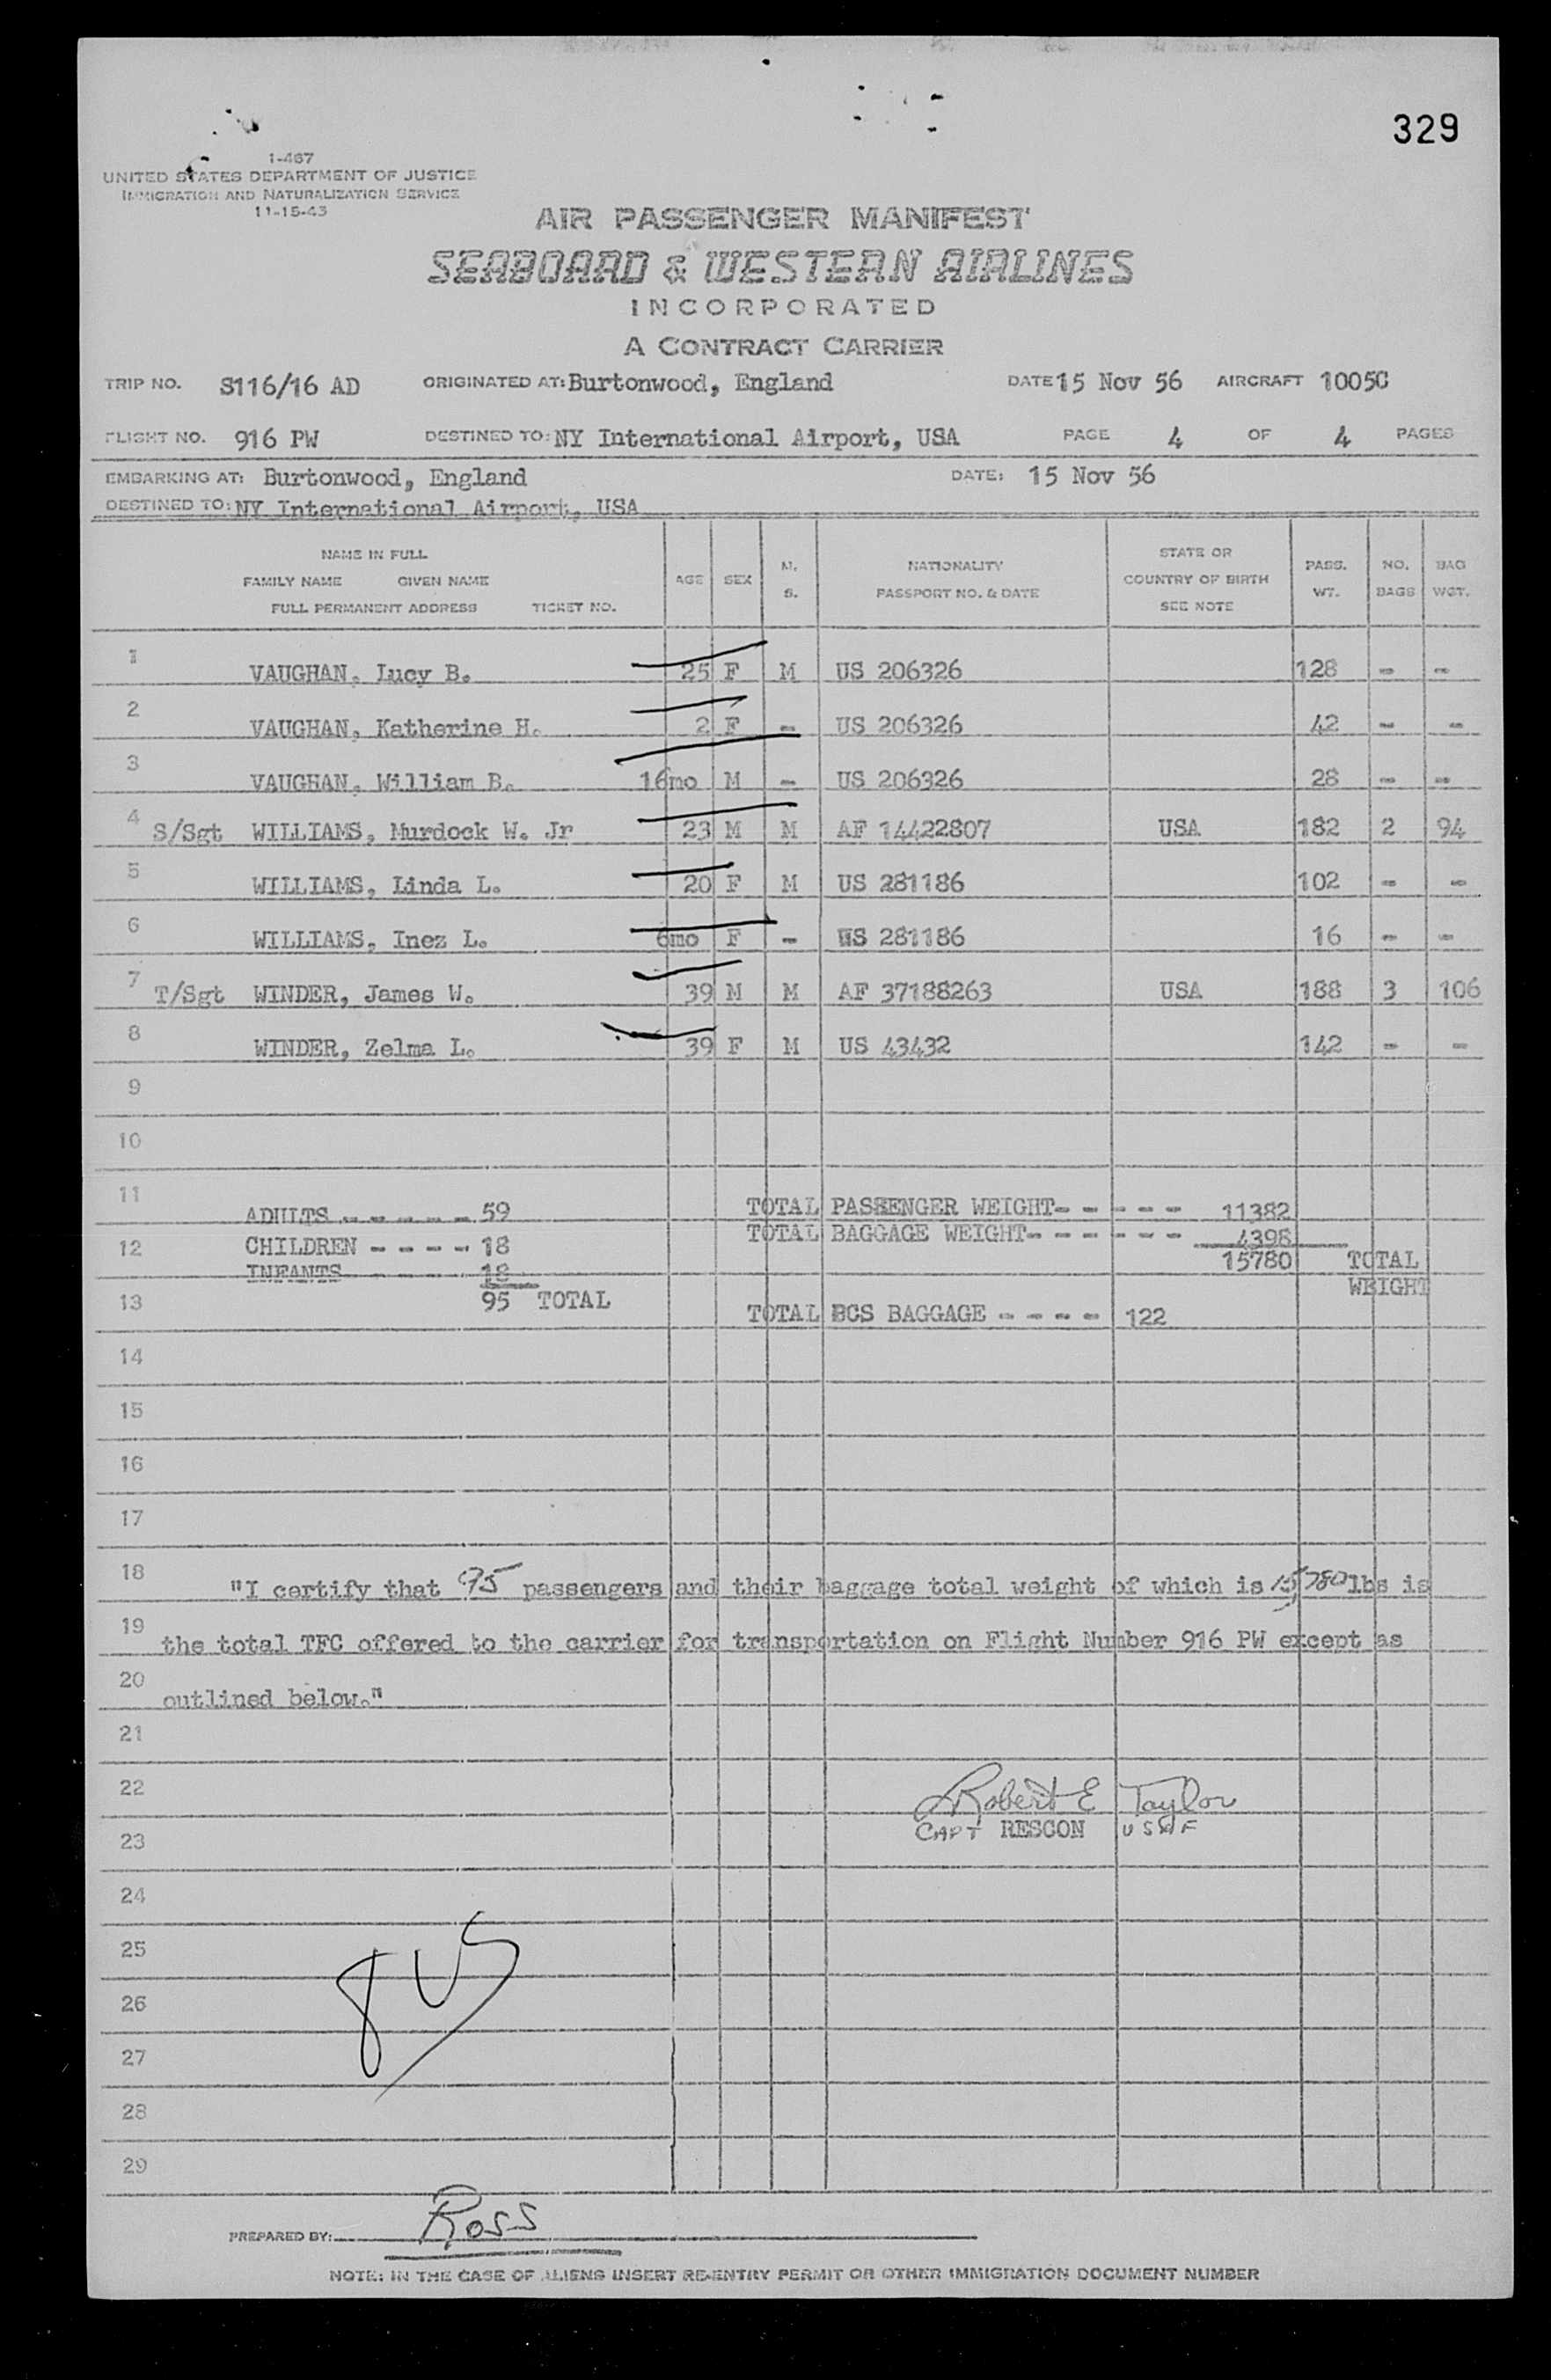 329
1-467
UNITED STATES DEPARTMENT OF JUSTICE
IMMIGRATION AND NATURALIZATION SERVICE
11-15-43
AIR PASSENGER MANIFEST
SEABOARD & WESTERN AIRLINES
INCORPORATED
A CONTRACT CARRIER
TRIP NO. S116/16 AD ORIGINATED AT: Burtonwood, England DATE 15 Nov 56 AIRCRAFT 1005C
FLIGHT NO. 916 PW DESTINED TO: NY International Airport, USA PAGE 4 OF 4 PAGES
EMBARKING AT: Burtonwood, England DATE: 15 Nov 56
DESTINED TO: NY International Airport, USA
NAME IN FULL
FAMILY NAME GIVEN NAME
FULL PERMANENT ADDRESS TICKET NO.
AGE SEX M. S.
NATIONALITY
PASSPORT NO. & DATE
STATE OR
COUNTRY OF BIRTH
SEE NOTE
PASS. WT.
NO. BAGS
BAG WGT.
1 VAUGHAN, Lucy B. 25 F M US 206326 128 - -
2 VAUGHAN, Katherine H. 2 F - US 206326 42 - -
3 VAUGHAN, William B. 16mo M - US 206326 28 - -
4 S/Sgt WILLIAMS, Murdock W. Jr 23 M M AF 14422807 USA 182 2 94
5 WILLIAMS, Linda L. 20 F M US 281186 102 - -
6 WILLIAMS, Inez L. 6mo F - US 281186 16 - -
7 T/Sgt WINDER, James W. 39 M M AF 37188263 USA 188 3 106
8 WINDER, Zelma L. 39 F M US 43432 142 - -
9
10
11 ADULTS - - - - - 59 TOTAL PASSENGER WEIGHT- - - - - 11382
TOTAL BAGGAGE WEIGHT- - - - - - 4398
12 CHILDREN - - - - 18 15780 TOTAL
INFANTS - - - - 18 WEIGHT
13 95 TOTAL TOTAL BCS BAGGAGE - - - - 122
14
15
16
17
18 "I certify that 95 passengers and their baggage total weight of which is 15,780 lbs is
19 the total TFC offered to the carrier for transportation on Flight Number 916 PW except as
20 outlined below."
21
22 Robert E Taylor
23 CAPT RESCON USAF
24
25
8 US
26
27
28
29
PREPARED BY: Ross
NOTE: IN THE CASE OF ALIENS INSERT RE-ENTRY PERMIT OR OTHER IMMIGRATION DOCUMENT NUMBER